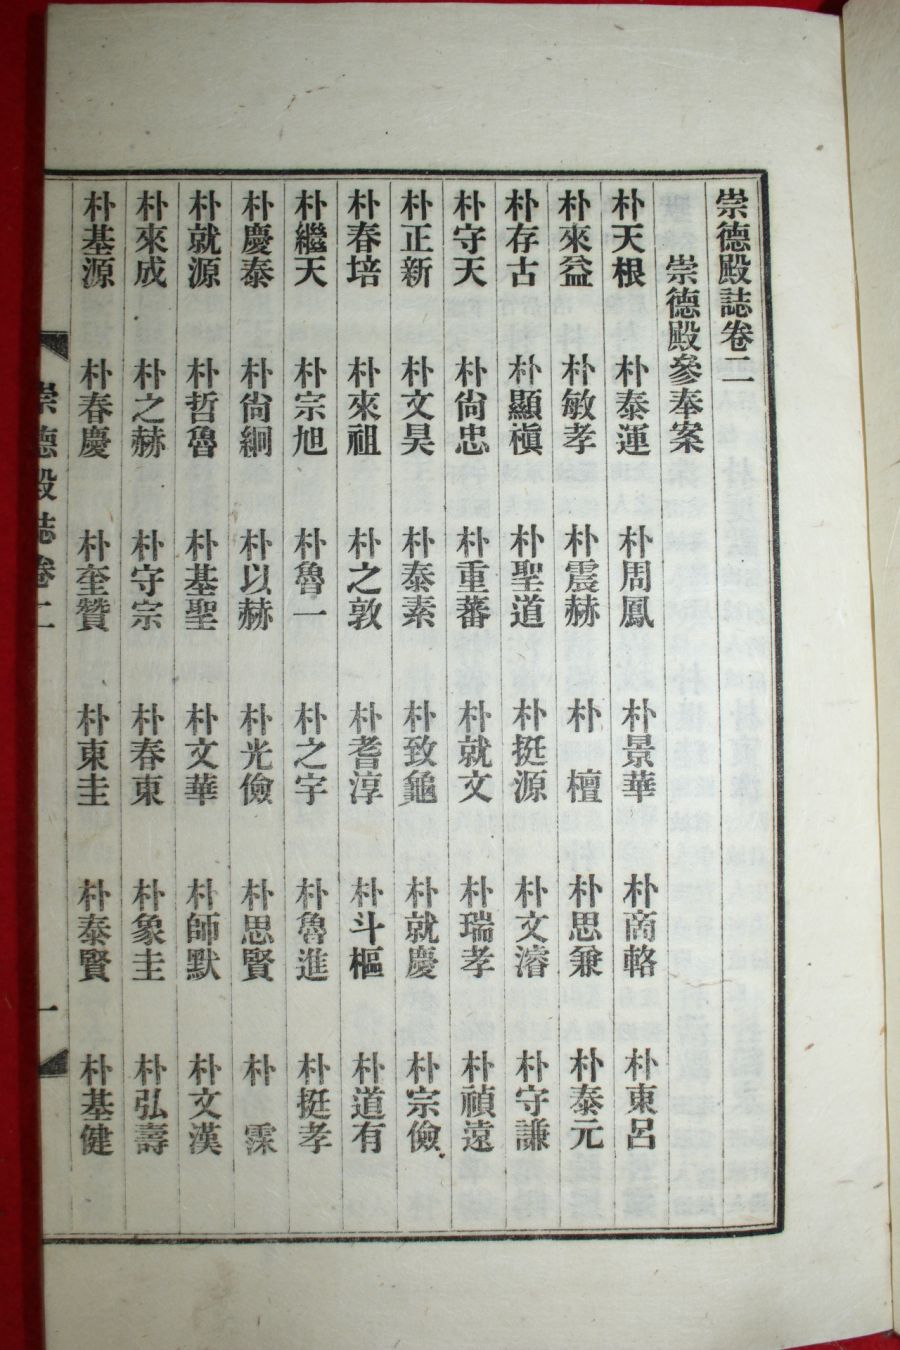 崇德殿誌卷二
崇德殿參奉案
朴天根 朴泰運 朴周鳳 朴景華 朴商輅 朴東呂
朴來益 朴敏孝 朴震赫 朴檀 朴思兼 朴泰元
朴存古 朴顯槇 朴聖道 朴挺源 朴文濬 朴守謙
朴守天 朴尙忠 朴重蕃 朴就文 朴瑞孝 朴禎遠
朴正新 朴文昊 朴泰素 朴致龜 朴就慶 朴宗儉
朴春培 朴來祖 朴之敦 朴耆淳 朴斗樞 朴道有
朴繼天 朴宗旭 朴魯一 朴之宇 朴魯進 朴挺孝
朴慶泰 朴尙絅 朴以赫 朴光儉 朴思賢 朴霂
朴就源 朴哲魯 朴基聖 朴文華 朴師默 朴文漢
朴來成 朴之赫 朴守宗 朴春東 朴象圭 朴弘壽
朴基源 朴春慶 朴奎贊 朴東圭 朴泰賢 朴基健
崇德殿誌卷二 一